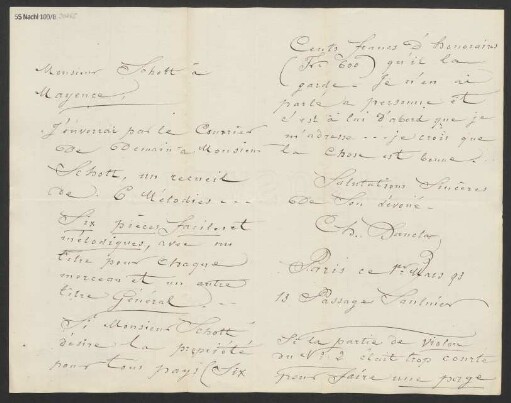 55 Nachl 100/B
Monsieur Schott à
Mayence.
J'enverrai par le Courrier
de Demain à Monsieur
Schott, un recueil
de 6 Mélodies - - -
Six pièces faciles et
mélodiques, avec un
titre pour chaque
morceau et un autre
titre Général - -
Si Monsieur Schott
désire la propriété
pour tous pays (Six
Cents francs d'honoraires
(Fr. 600) qu'il la
garde. Je n'en ai
parlé à personne et
c'est à lui d'abord que je
m'adresse - - - je crois que
la chose est bonne.
Salutations Sincères
de Son dévoué -
Ch. Dancla
Paris ce 1er Mars 93
13 Passage Saulnier
Si la partie de Violon
du N° 2 était trop courte
pour faire une page